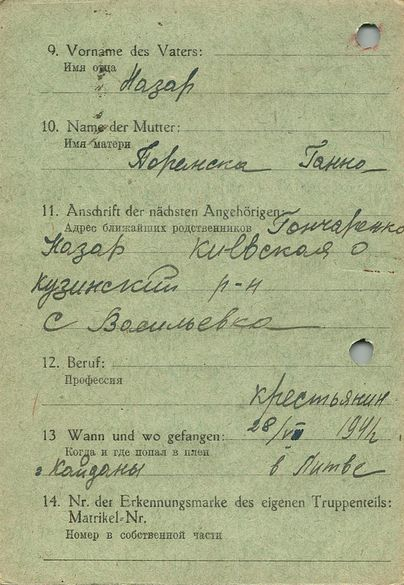 9. Vorname des Vaters:
Имя отца
Назар
10. Name der Mutter:
Имя матери
Поренска Ганно
11. Anschrift der nächsten Angehörigen:
Адрес ближайших родственников Гончаренко
Назар Киевская о
Кузинский р-н
с Васильевка
12. Beruf:
Профессия
крестьянин
13 Wann und wo gefangen: 28/VII 1941 г
Когда и где попал в плен
г Кайданы в Литве
14. Nr. der Erkennungsmarke des eigenen Truppenteils:
Matrikel-Nr.
Номер в собственной части